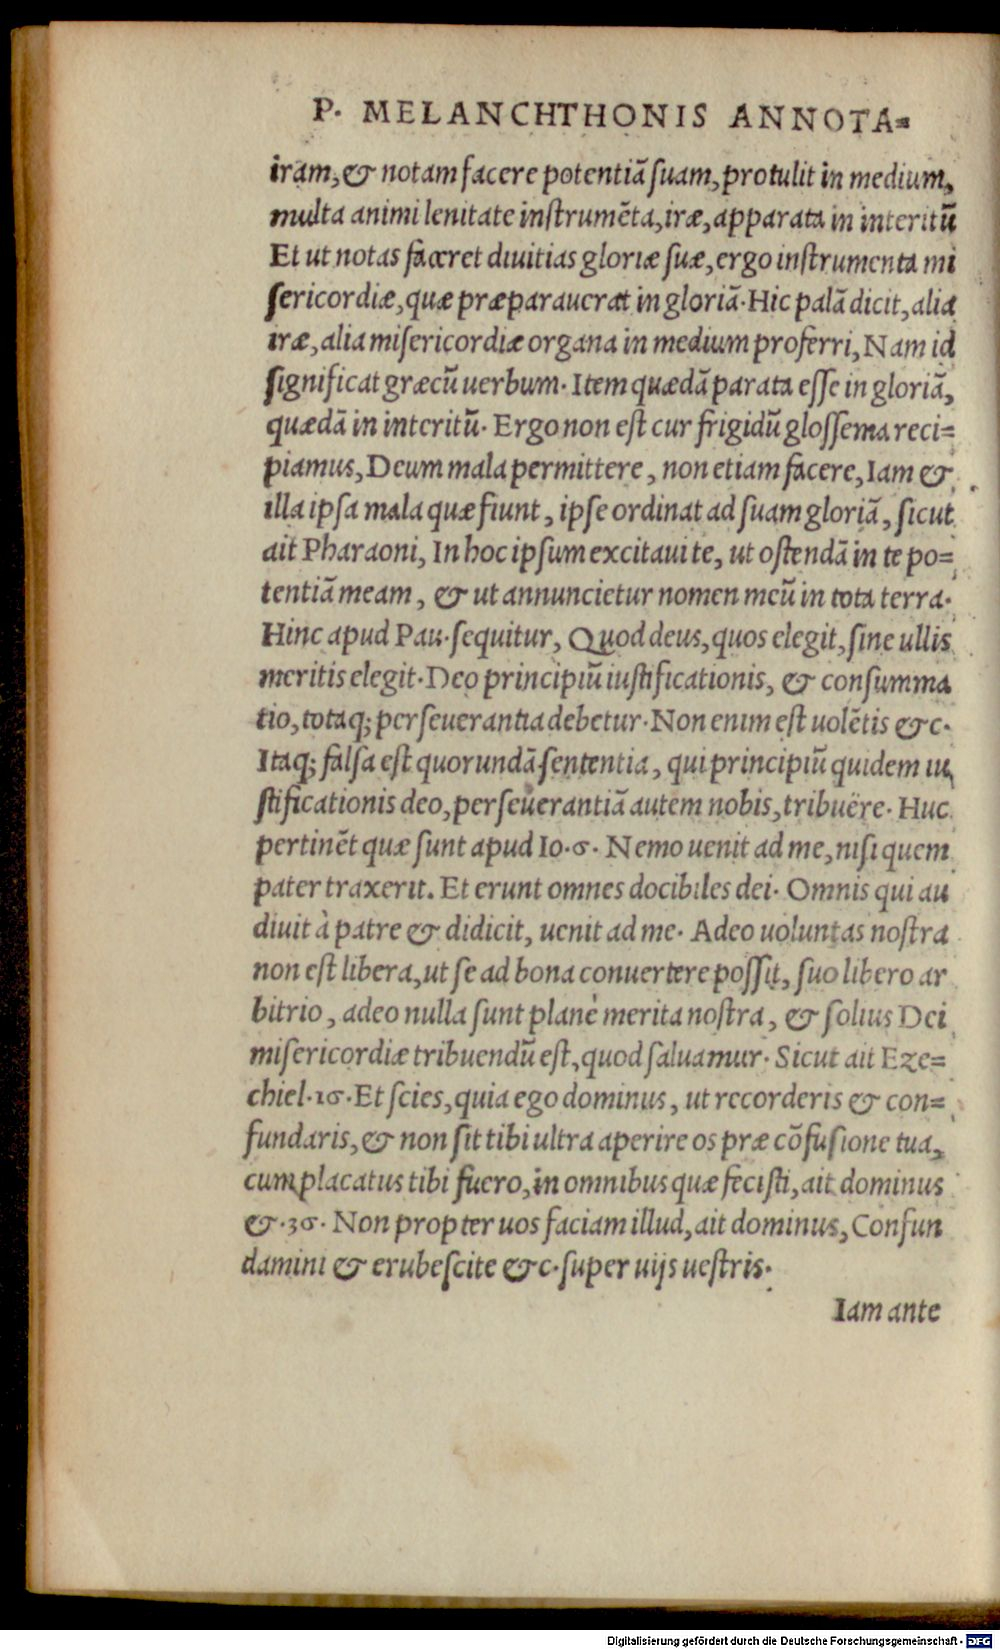 P. MELANCHTHONIS ANNOTA=
iram, & notam facere potentiã suam, protulit in medium,
multa animi lenitate instrumẽta, iræ, apparata in interitũ
Et ut notas faceret diuitias gloriæ suæ, ergo instrumenta mi
sericordiæ, quæ præparauerat in gloriã. Hic palã dicit, alia
iræ, alia misericordiæ organa in medium proferri, Nam id
significat græcũ uerbum. Item quædã parata esse in gloriã,
quædã in interitũ. Ergo non est cur frigidũ glossema reci=
piamus, Deum mala permittere, non etiam facere, Iam &
illa ipsa mala quæ fiunt, ipse ordinat ad suam gloriã, sicut
ait Pharaoni, In hoc ipsum excitaui te, ut ostendã in te po=
tentiã meam, & ut annuncietur nomen meũ in tota terra.
Hinc apud Pau. sequitur, Quod deus, quos elegit, sine ullis
meritis elegit. Deo principiũ iustificationis, & consumma
tio, totaq; perseuerantia debetur. Non enim est uolẽtis &c.
Itaq; falsa est quorundã sententia, qui principiũ quidem iu
stificationis deo, perseuerantiã autem nobis, tribuëre. Huc
pertinẽt quæ sunt apud Io. 6. Nemo uenit ad me, nisi quem
pater traxerit. Et erunt omnes docibiles dei. Omnis qui au
diuit à patre & didicit, uenit ad me. Adeo uoluntas nostra
non est libera, ut se ad bona conuertere possit, suo libero ar
bitrio, adeo nulla sunt planè merita nostra, & solius Dei
misericordiæ tribuendũ est, quod saluamur. Sicut ait Eze=
chiel. 16. Et scies, quia ego dominus, ut recorderis & con=
fundaris, & non sit tibi ultra aperire os præ cõfusione tua,
cum placatus tibi fuero, in omnibus quæ fecisti, ait dominus
&. 36. Non propter uos faciam illud, ait dominus, Confun
damini & erubescite &c. super uijs uestris.
Iam ante
Digitalisierung gefördert durch die Deutsche Forschungsgemeinschaft - DFG